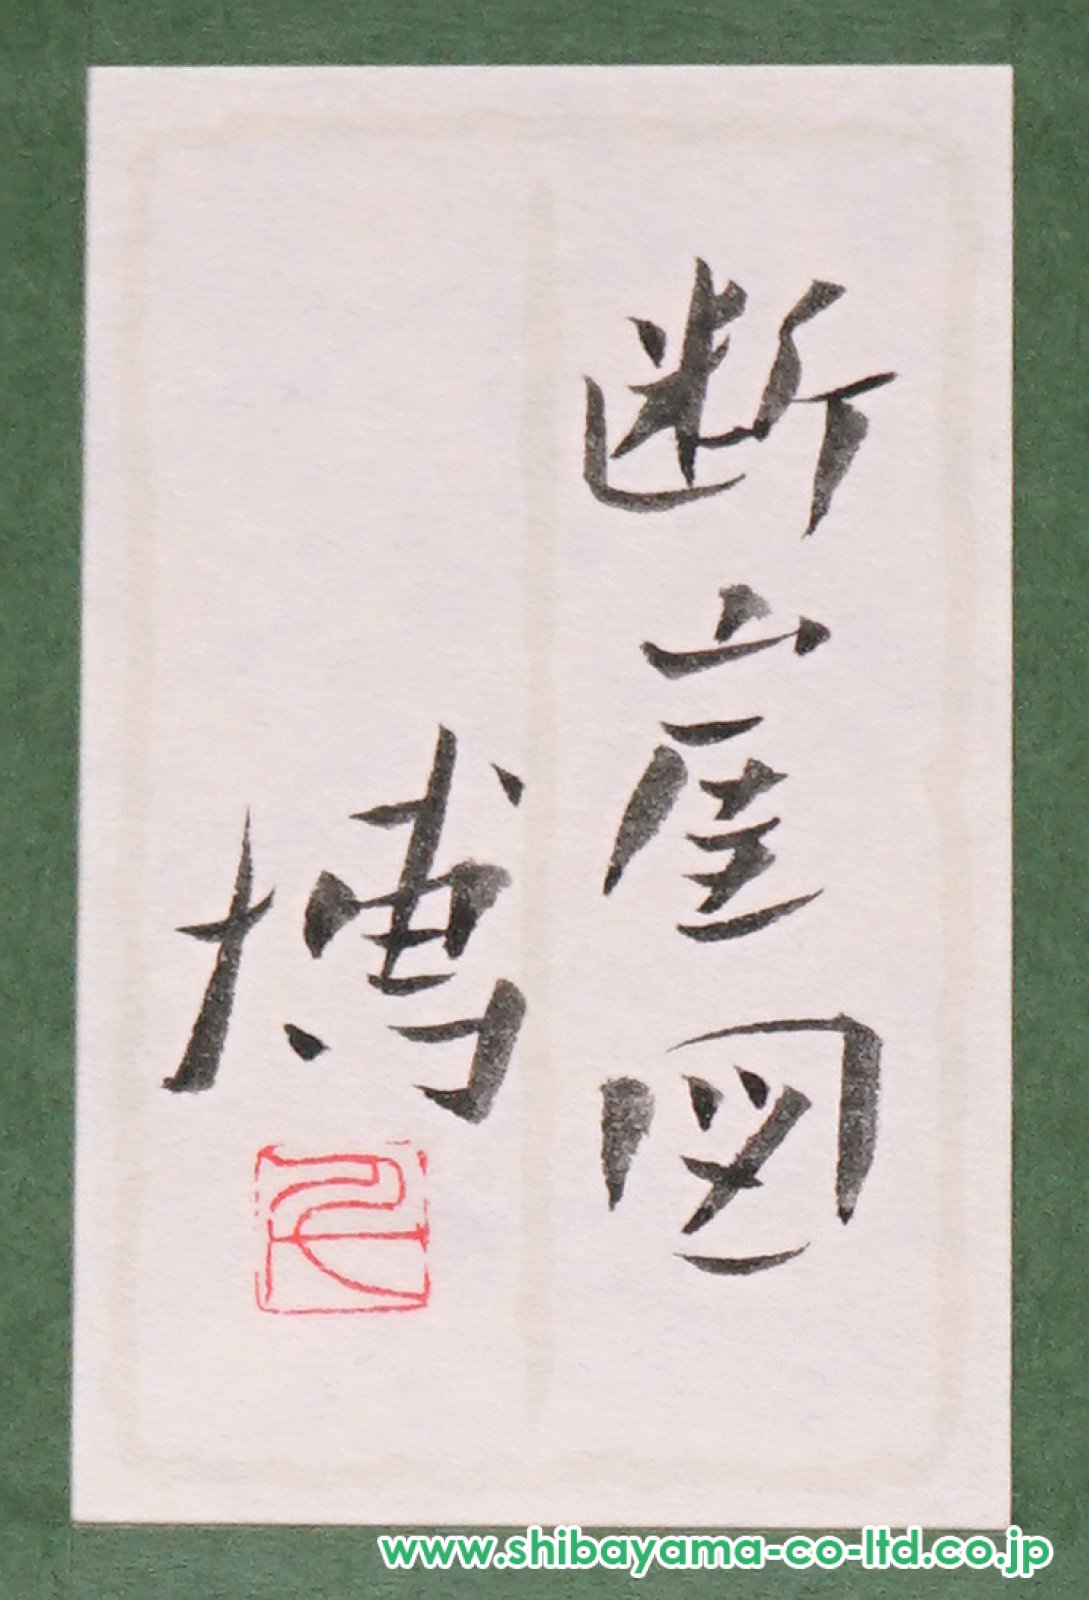 断崖図
博
www.shibayama-co-ltd.co.jp